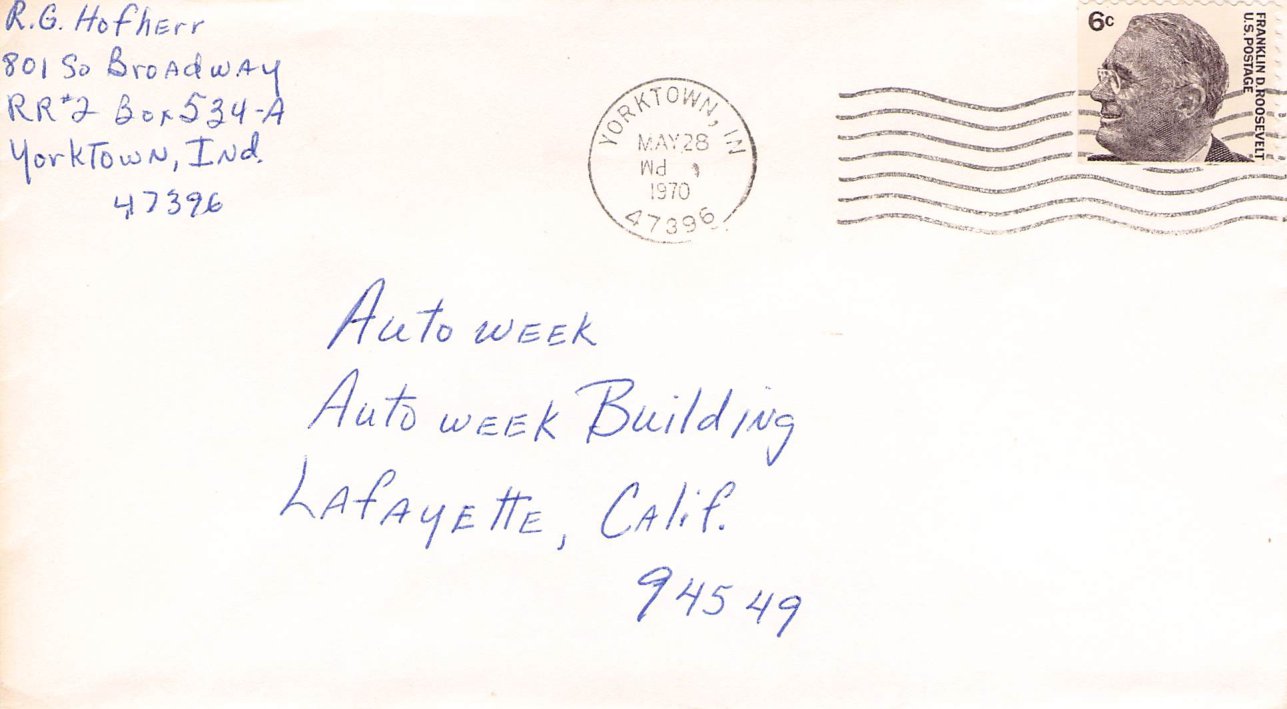 R.G. Hofherr
801 So Broadway
RR#2 Box 534-A
Yorktown, Ind.
47396
YORKTOWN, IN
MAY 28
PM
1970
47396
6c
FRANKLIN D. ROOSEVELT
U.S. POSTAGE
Auto week
Auto week Building
Lafayette, Calif.
94549